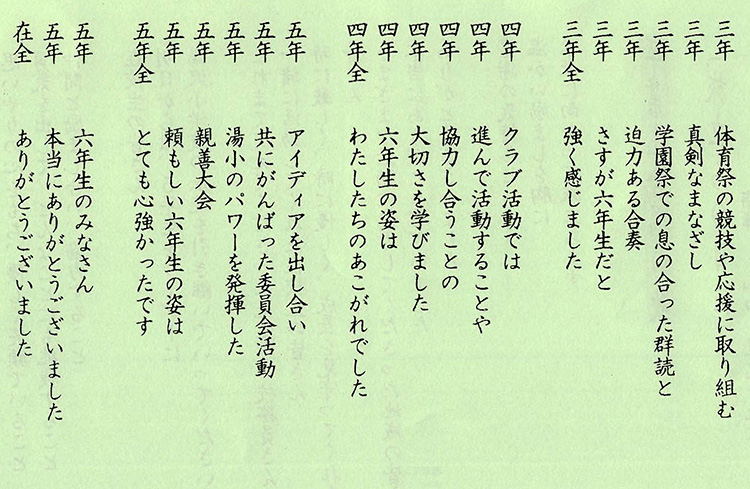 三年　体育祭の競技や応援に取り組む
三年　真剣なまなざし
三年　学園祭での息の合った群読と
三年　迫力ある合奏
三年　さすが六年生だと
三年全　強く感じました
四年　クラブ活動では
四年　進んで活動することや
四年　協力し合うことの
四年　大切さを学びました
四年　六年生の姿は
四年全　わたしたちのあこがれでした
五年　アイディアを出し合い
五年　共にがんばった委員会活動
五年　湯小のパワーを発揮した
五年　親善大会
五年　頼もしい六年生の姿は
五年全　とても心強かったです
五年　六年生のみなさん
五年　本当にありがとうございました
在全　ありがとうございました